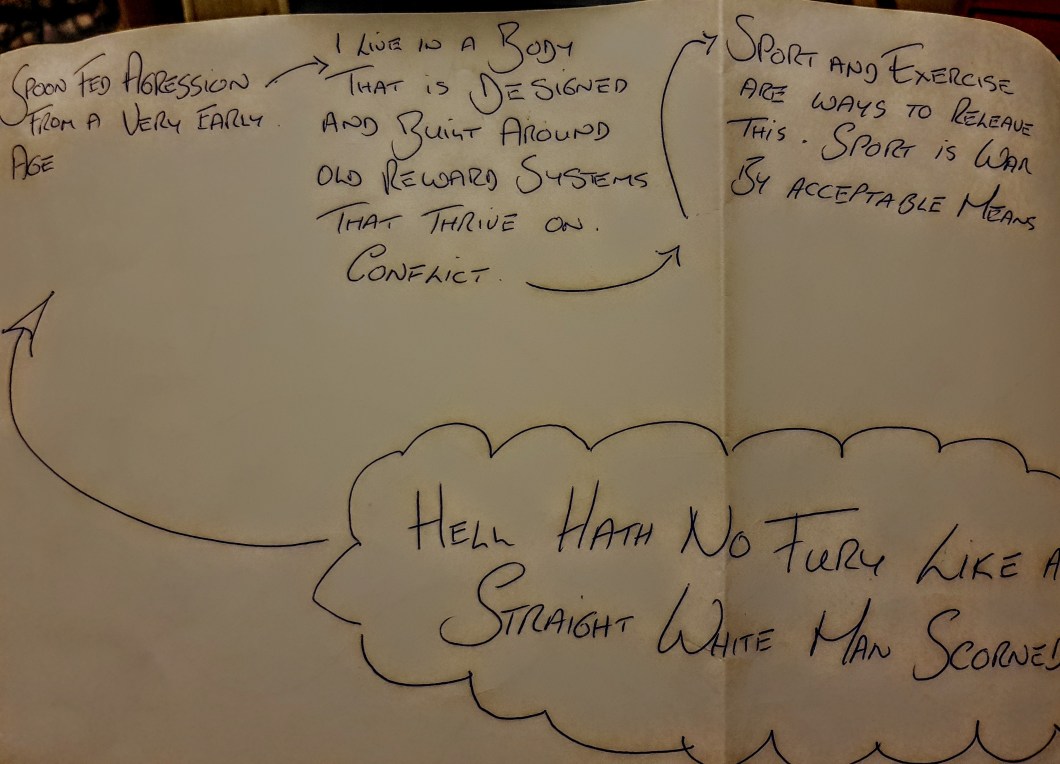 SPOON FED AGRESSION
FROM A VERY EARLY.
AGE
I LIVE IN A BODY
THAT IS DESIGNED
AND BUILT AROUND
OLD REWARD SYSTEMS
THAT THRIVE ON.
CONFLICT.
SPORT AND EXERCISE
ARE WAYS TO RELEAVE
THIS. SPORT IS WAR
BY ACCEPTABLE MEANS
HELL HATH NO FURY LIKE A
STRAIGHT WHITE MAN SCORNED